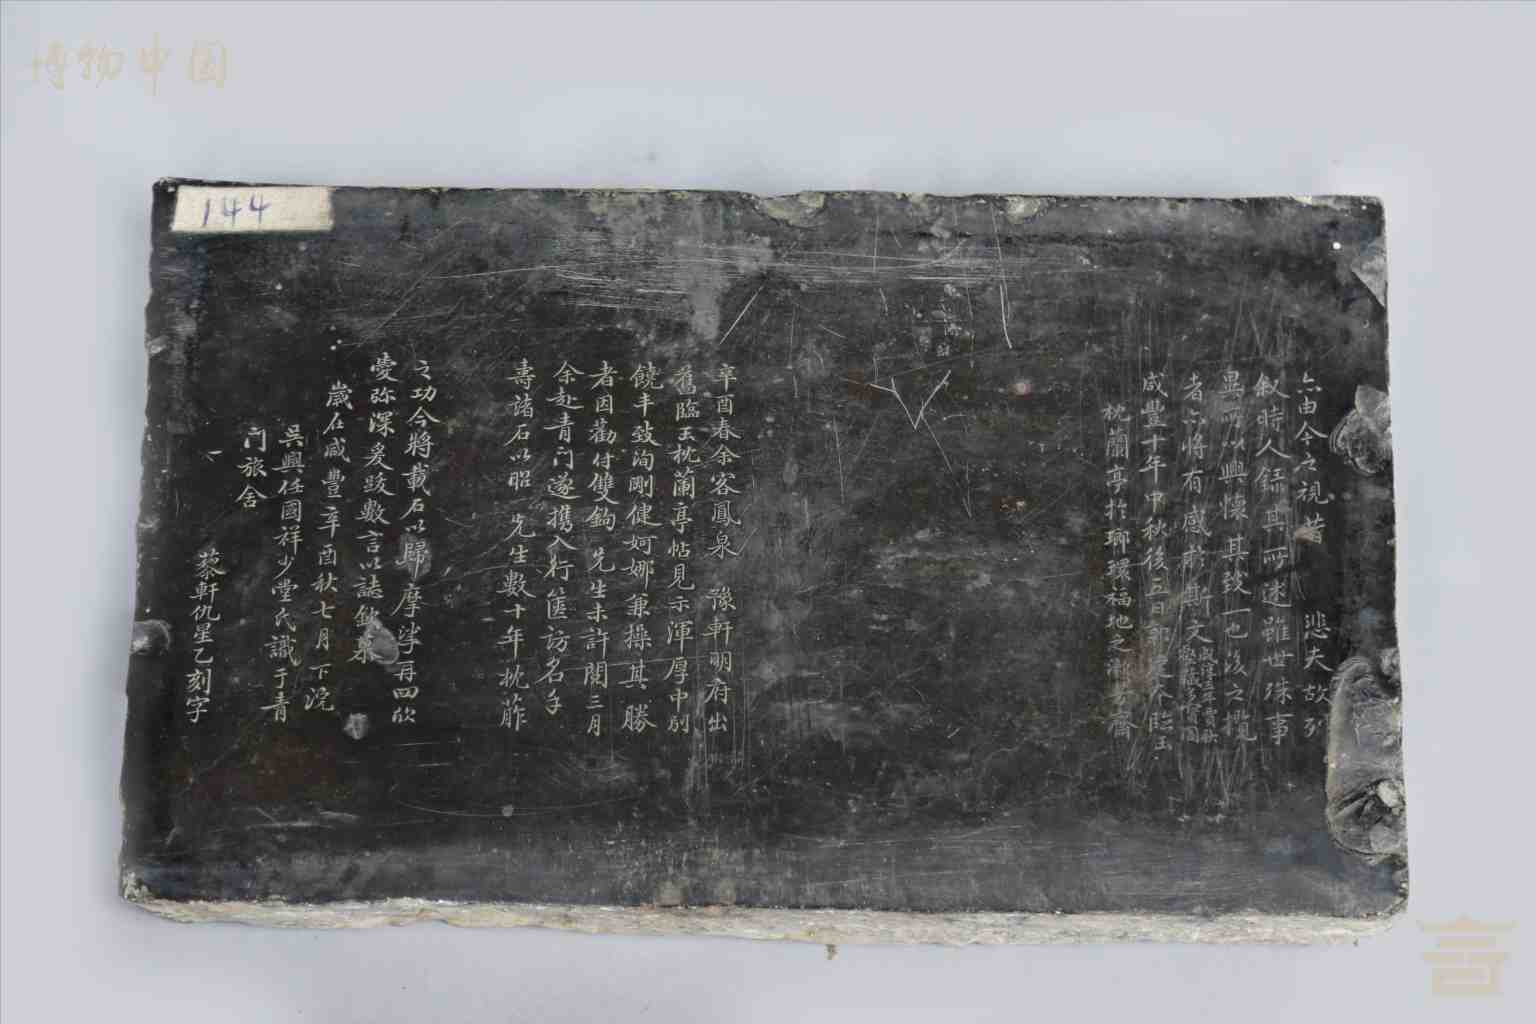 博物中国
144
亦由今之視昔 悲夫故列
叙時人錄其所述雖世殊事
異所以興懷其致一也後之攬
者亦將有感於斯文
咸豐十年中秋後五日 臨玉
枕蘭亭於瑯環福地之漸 齋
辛酉春余客鳳泉 豫軒明府出
舊臨玉枕蘭亭帖見示渾厚中別
饒丰致洵剛健婀娜兼操其勝
者因勸付雙鉤 先生未許閱三月
余赴青門遂攜入行篋訪名手
壽諸石以昭 先生數十年枕葄
之功今將載石以歸摩挲再四欣
愛弥深爰跋數言以誌欽
歲在咸豐辛酉秋七月下浣
吳興任國祥少堂氏識于青
門旅舍
藜軒仇星乙刻字